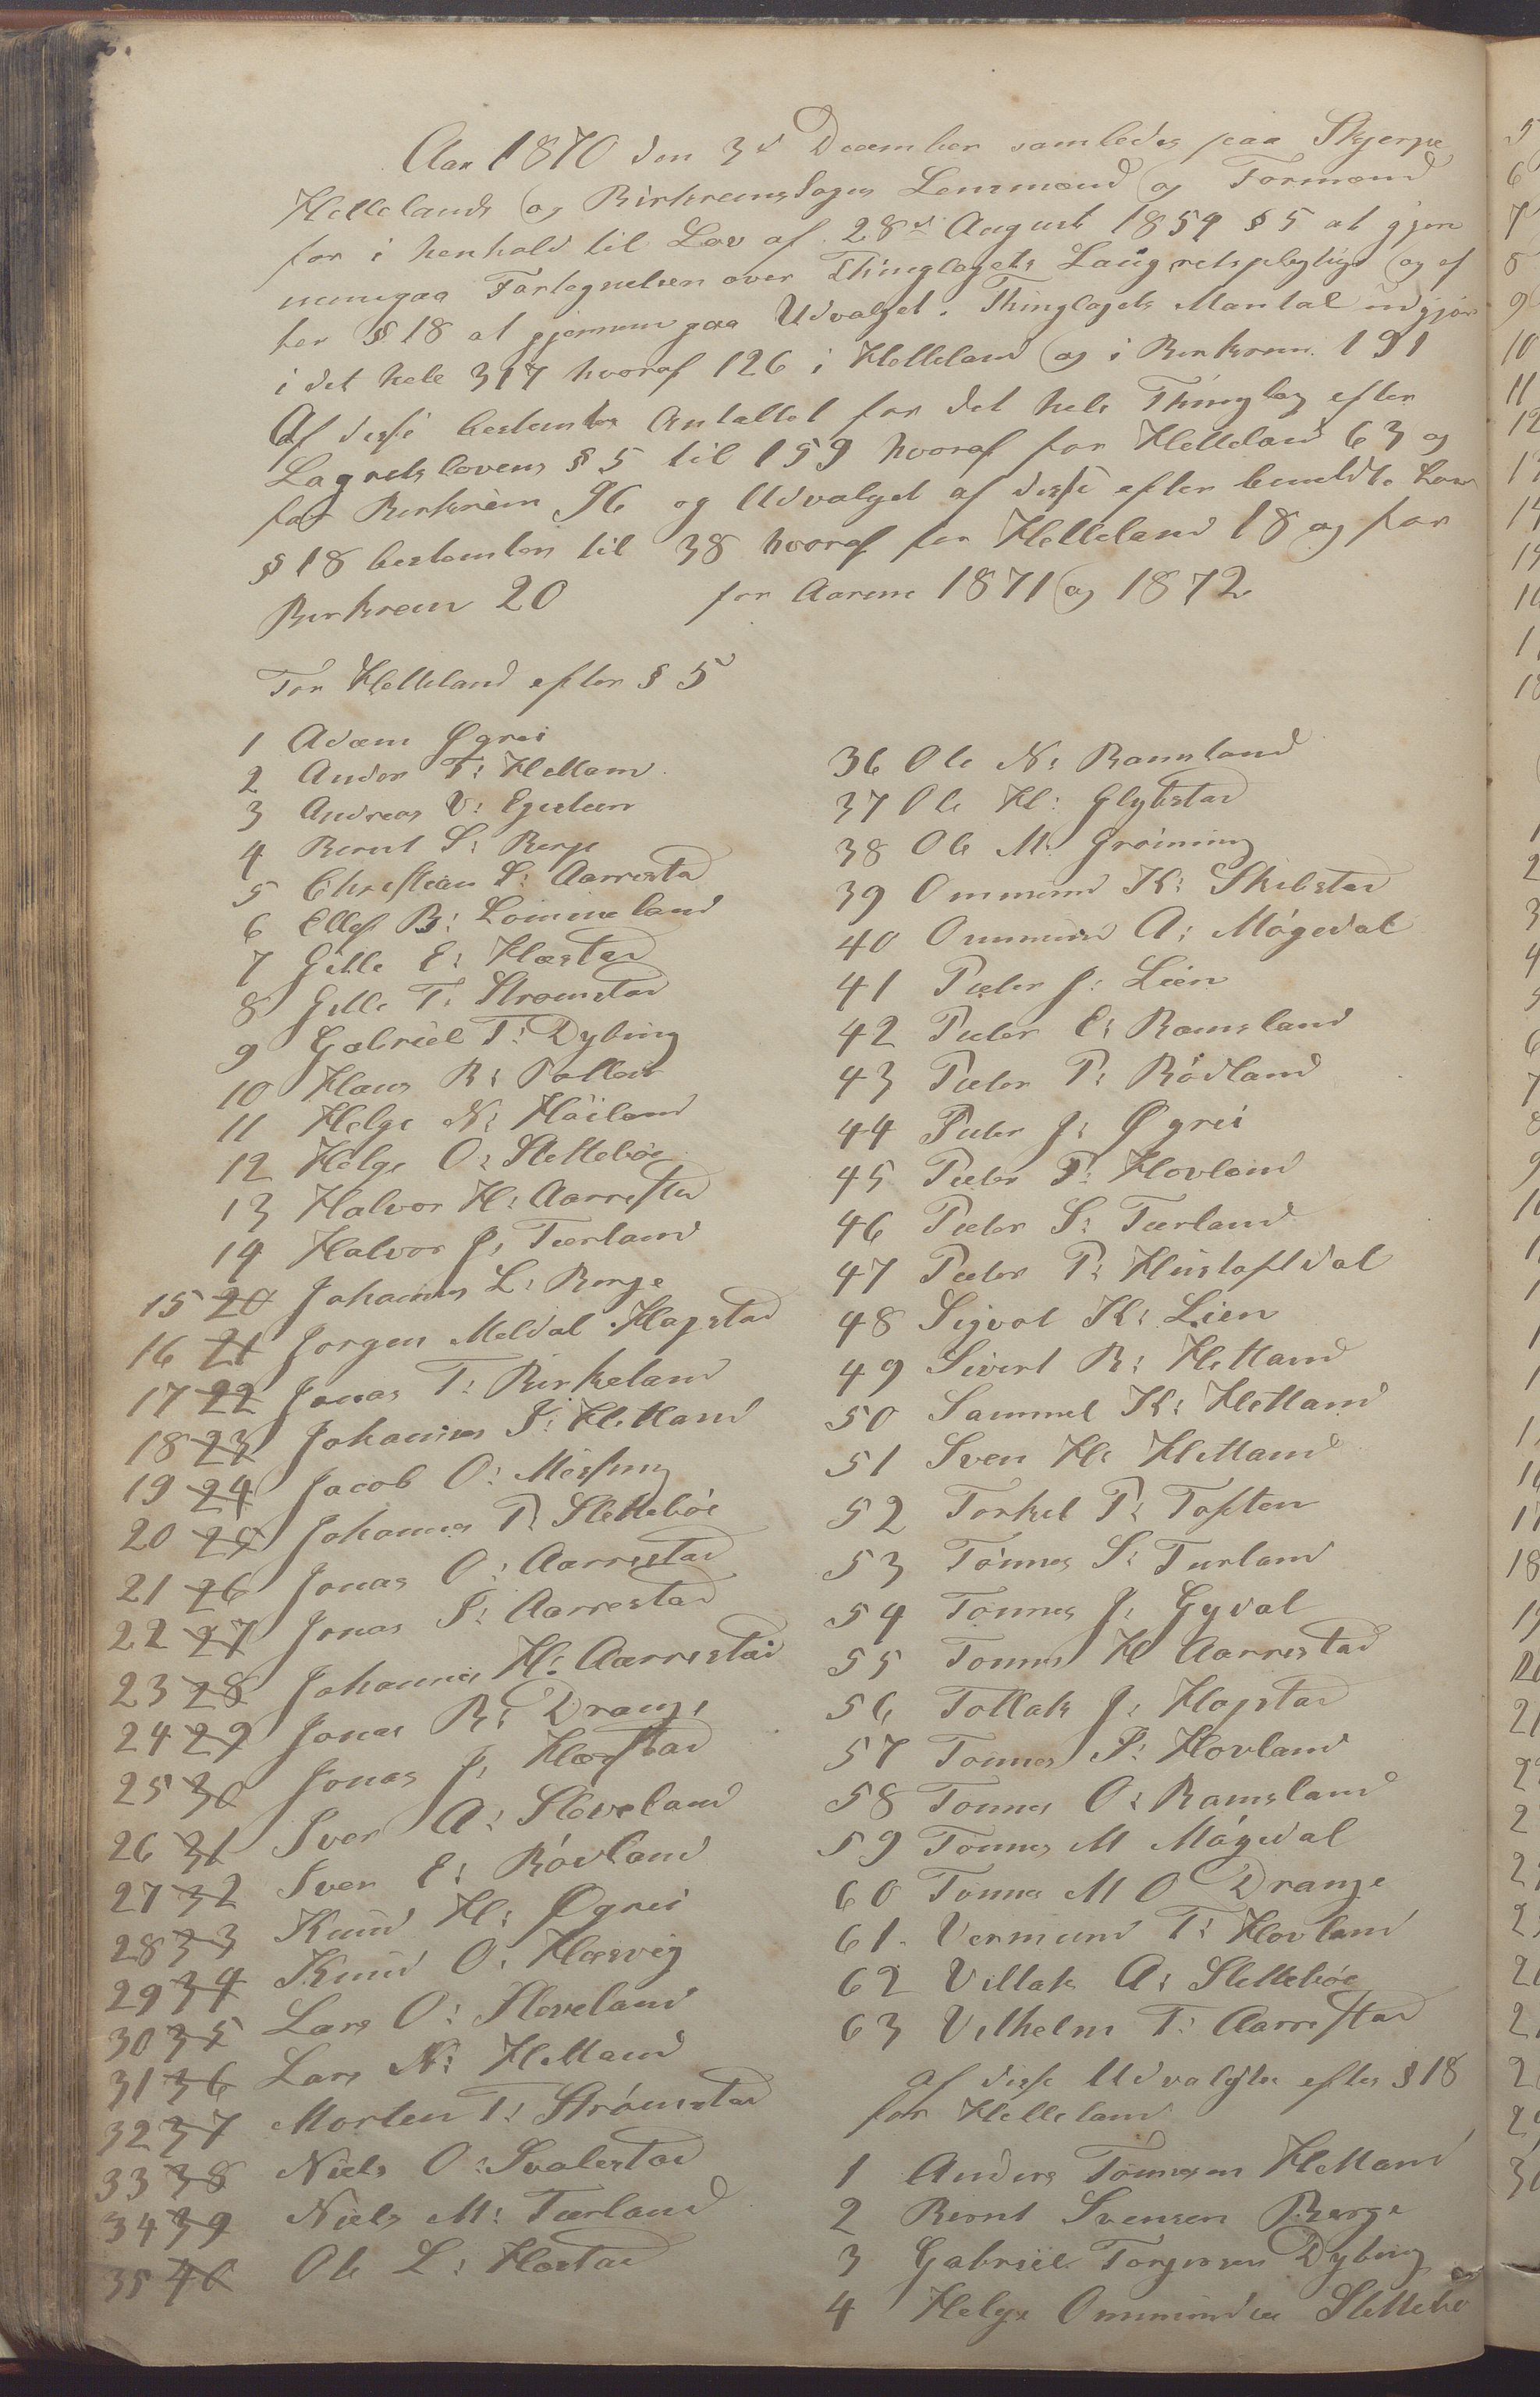 Aar 1870 den 3d December samledes paa Skjerpe
Hellelands og Birkrems Sogns Lensmænd og Formænd
for i henhold til Lov af 28d August 1854 § 5 at gjen
nemgaa Fortegnelsen over Thinglagets Laugretspligtige og ef
ter § 18 at gjennemgaa Udvalget. Thinglagets Mantal udgjør
i det hele 317 hvoraf 126 i Helleland og i Birkrem 191
Af disse bestemtes Antallet for det hele Thinglag efter
Lagretslovens § 5 til 159 hvoraf for Helleland 63 og
for Birkrem 96 og Udvalget af disse efter bemeldte Lov
§ 18 bestemtes til 38 hvoraf for Helleland 18 og for
Birkrem 20 for Aarene 1871 og 1872
For Helleland efter § 5
1 Adam Øgrei
2 Anders T: Hetland
3 Andreas V: Egesteen
4 Bernt S: Berge
5 Christian P: Aarrestad
6 Ellef B: Lomeland
7 Gitle E: Hæstad
8 Gitle T: Strømstad
9 Gabriel T: Dybing
10 Hans R:
11 Helge N: Høiland
12 Helge O: Slettebøe
13 Halvor H: Aarrestad
14 Halvor J: Tærland
15 20 Johannes L: Berge
16 21 Jørgen Meldal Hapstad
17 22 Jonas T: Birkeland
18 23 Johannes J: Hetland
19 24 Jacob O: Møssing
20 25 Johannes P: Slettebøe
21 26 Jonas O: Aarrestad
22 27 Jonas P: Aarrestad
23 28 Johannes H: Aarrestad
24 29 Jonas R: Drange
25 30 Jonas J: Hæstad
26 31 Iver A: Steveland
27 32 Iver E: Rødland
28 33 Knud H: Øgrei
29 34 Knud O: Hæsvig
30 35 Lars O: Steveland
31 36 Lars N: Hetland
32 37 Morten T: Strømstad
33 38 Niels O: Svalestad
34 39 Niels M: Tærland
35 40 Ole L: Hæstad
36 Ole N: Ramsland
37 Ole H: Glybstad
38 Ole M: Grøning
39 Ommund K: Skibstad
40 Ommund A: Møgedal
41 Peder J: Lien
42 Peder E: Ramsland
43 Peder P: Rødland
44 Peder J: Øgrei
45 Peder P: Hovland
46 Peder S: Tærland
47 Peder P: Hustoftdal
48 Sigvat K: Lien
49 Sivert R: Hetland
50 Samuel K: Hetland
51 Sven H: Hetland
52 Torkel P: Toften
53 Tønnes S: Tærland
54 Tønnes J: Gyvat
55 Tønnes H Aarrestad
56 Tollak J: Hapstad
57 Tønnes P: Hovland
58 Tønnes O: Ramsland
59 Tønnes M Møgedal
60 Tønnes M O Drange
61 Vermund T: Hovland
62 Villak A: Slettebøe
63 Vilhelm T: Aarrestad
af disse Udvalgte efter § 18
for Helleland
1 Anders Tønnesen Hetland
2 Bernt Svensen Berge
3 Gabriel Torgersen Dybing
4 Helge Ommundsen Slettebø